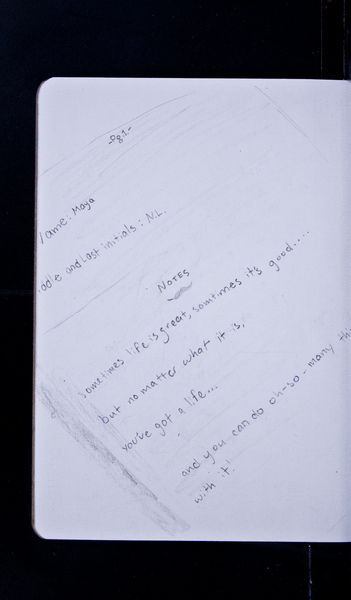 -Pg.1-
Name: Maya
iddle and Last initials: N.L.
NOTES
sometimes life is great, somtimes its good.....
but no matter what it is,
you've got a life...
and you can do oh-so-many thi
with it!